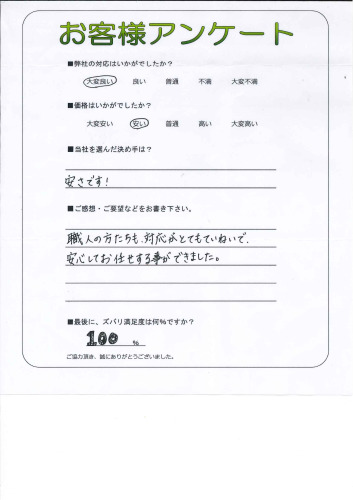 お客様アンケート
■弊社の対応はいかがでしたか？
大変良い 良い 普通 不満 大変不満
■価格はいかがでしたか？
大変安い 安い 普通 高い 大変高い
■当社を選んだ決め手は？
安さです！
■ご感想・ご要望などをお書き下さい。
職人の方たちも、対応がとてもていねいで、
安心してお任せする事ができました。
■最後に、ズバリ満足度は何％ですか？
100 ％
ご協力頂き、誠にありがとうございました。